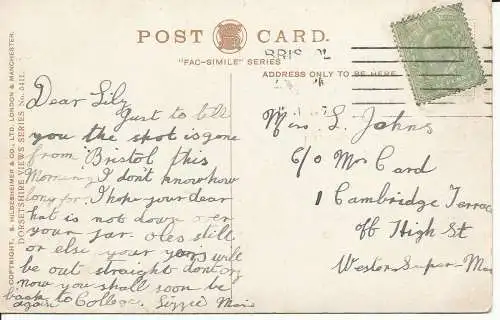 POST CARD.
"FAC-SIMILE" SERIES
ADDRESS ONLY TO BE HERE
COPYRIGHT, S. HILDESHEIMER & CO., LTD. LONDON & MANCHESTER.
DORSETSHIRE VIEWS SERIES No. 5411.
BRISTOL
Dear Lily
Just to tell
you the shot is gone
from Bristol this
Morning I don't know how
long for. I hope your dear
hat is not down over
your still
or else your will
be out straight dont
now you shall soon be
back to College. Lizzie
again
Miss L. Johns
C/O Mrs Card
1 Cambridge Terrac
off High St
Weston Super-Ma